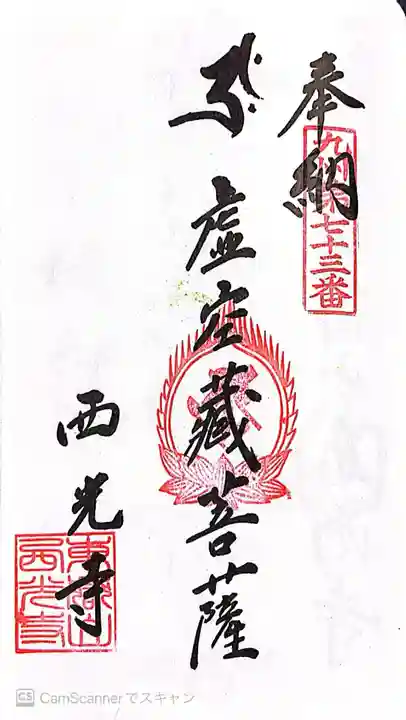 奉納
九州第七十三番
虚空蔵菩薩
西光寺
CS CamScannerでスキャン